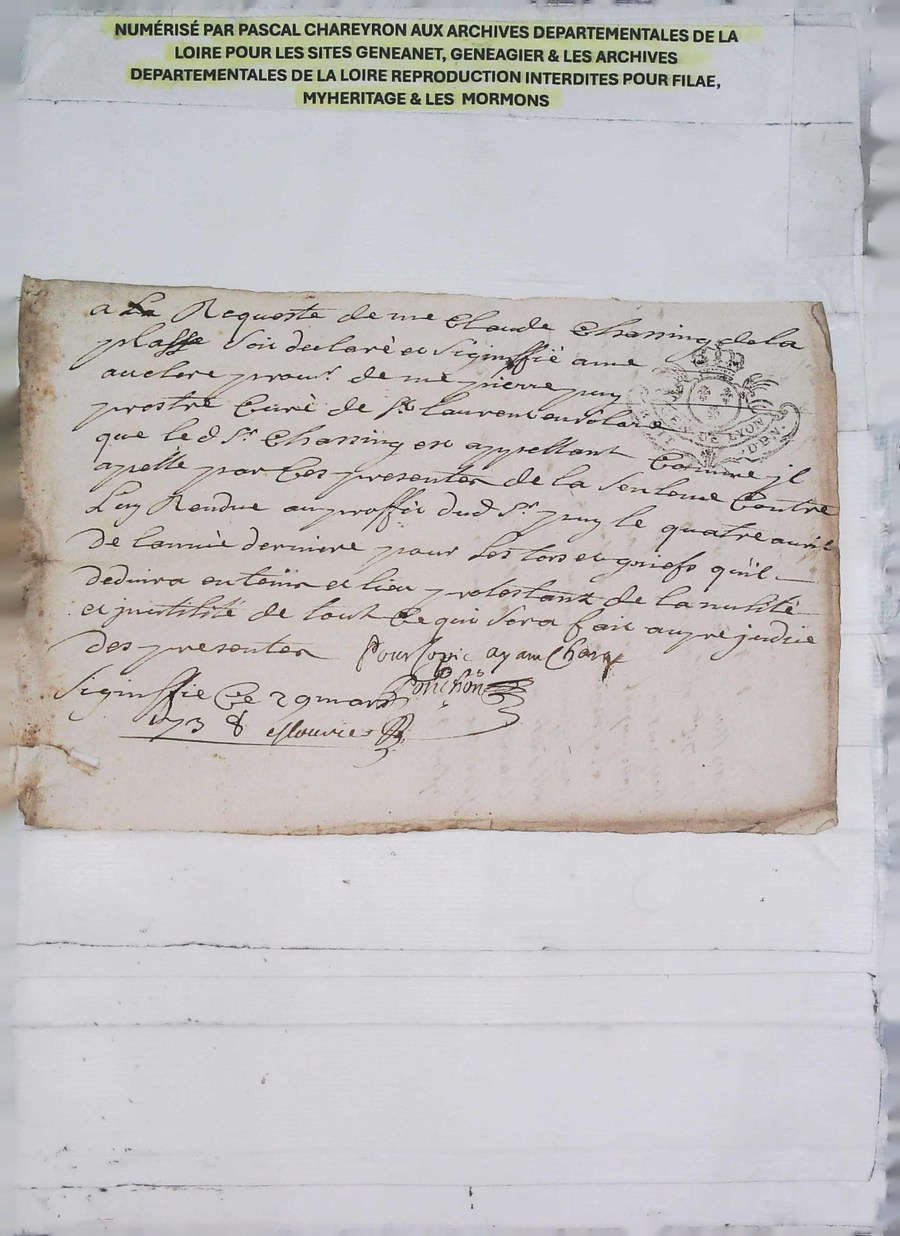 NUMÉRISÉ PAR PASCAL CHAREYRON AUX ARCHIVES DEPARTEMENTALES DE LA
LOIRE POUR LES SITES GENEANET, GENEAGIER & LES ARCHIVES
DEPARTEMENTALES DE LA LOIRE REPRODUCTION INTERDITES POUR FILAE,
MYHERITAGE & LES MORMONS
a La Requeste de me Claude Chassing de la
plasse soit declaré et signiffié a me
auclerc procur. de me pierre puy
prestre Curé de St Laurent en Solare
que led Sr Chassing est appellant Comme jl
apelle par Ces presentes de la Sentence Contre
Luy Rendue au proffit dud Sr puy le quatre avril
De lannée derniere pour Les torts et griefs quil
deduira en temps et lieu protestant de la nulité
et jnutilité de tout Ce qui sera fait au prejudice
des presentes Pour Copie ayant Charge
Signiffie Ce 29 mars Ponchon
1738
GEN. DE LYON
D.B.N.